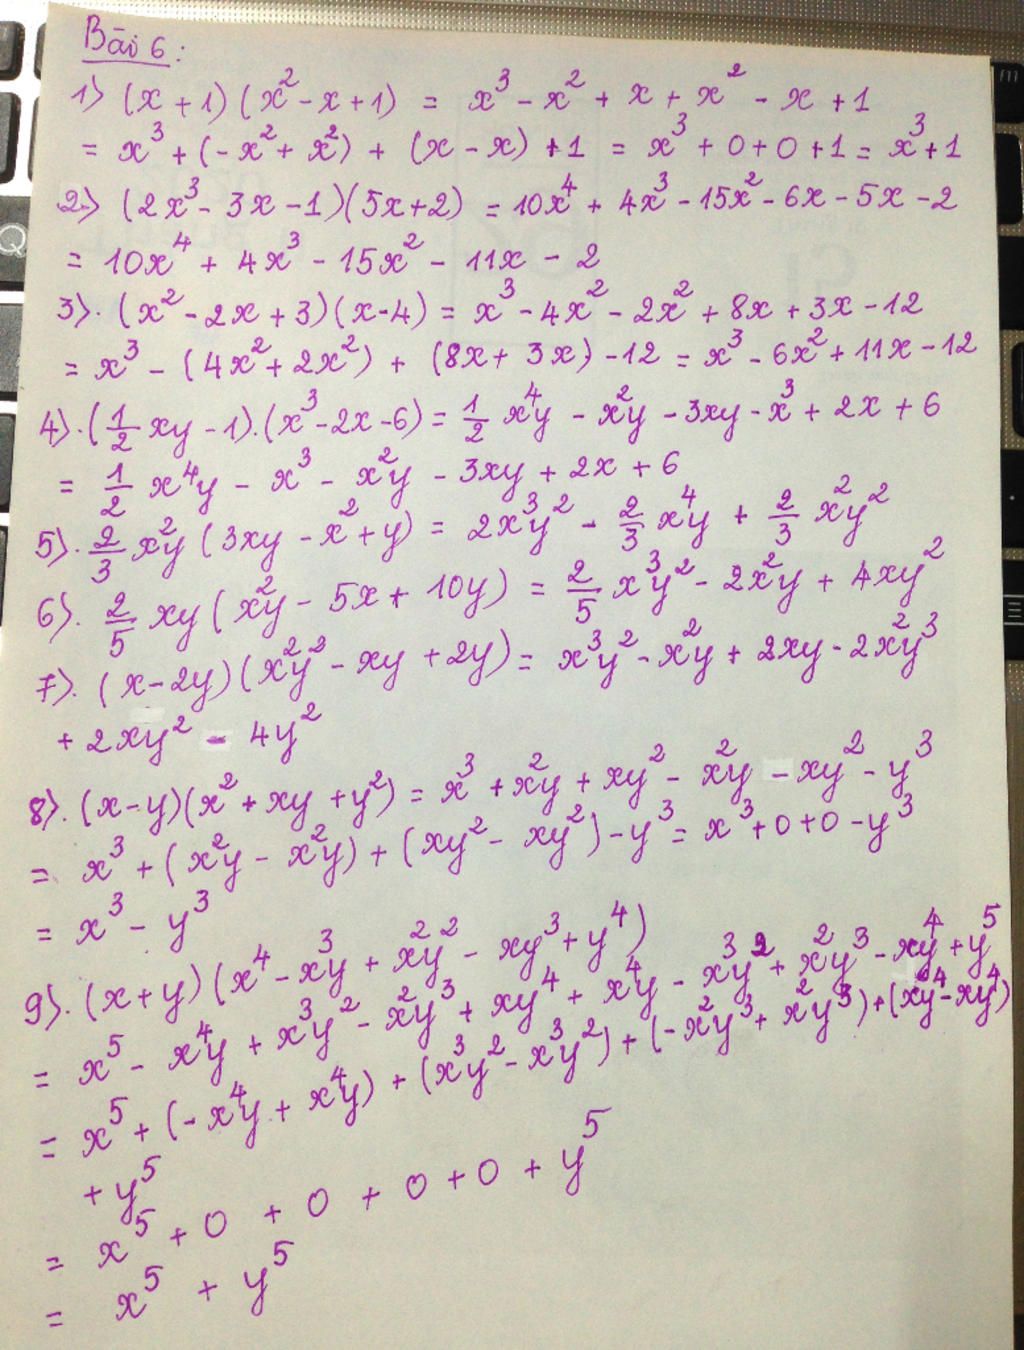 Bài 6:
1) (x + 1)(x² - x + 1) = x³ - x² + x + x² - x + 1
= x³ + (-x² + x²) + (x - x) + 1 = x³ + 0 + 0 + 1 = x³ + 1
2) (2x³ - 3x - 1)(5x + 2) = 10x⁴ + 4x³ - 15x² - 6x - 5x - 2
= 10x⁴ + 4x³ - 15x² - 11x - 2
3). (x² - 2x + 3)(x - 4) = x³ - 4x² - 2x² + 8x + 3x - 12
= x³ - (4x² + 2x²) + (8x + 3x) - 12 = x³ - 6x² + 11x - 12
4). (1/2 xy - 1).(x³ - 2x - 6) = 1/2 x⁴y - x²y - 3xy - x³ + 2x + 6
= 1/2 x⁴y - x³ - x²y - 3xy + 2x + 6
5). 2/3 x²y (3xy - x² + y) = 2x³y² - 2/3 x⁴y + 2/3 x²y²
6). 2/5 xy (x²y - 5x + 10y) = 2/5 x³y² - 2x²y + 4xy²
7). (x - 2y)(x²y² - xy + 2y) = x³y² - x²y + 2xy - 2x²y³
+ 2xy² - 4y²
8). (x - y)(x² + xy + y²) = x³ + x²y + xy² - x²y - xy² - y³
= x³ + (x²y - x²y) + (xy² - xy²) - y³ = x³ + 0 + 0 - y³
= x³ - y³
9). (x + y)(x⁴ - x³y + x²y² - xy³ + y⁴)
= x⁵ - x⁴y + x³y² - x²y³ + xy⁴ + x⁴y - x³y² + x²y³ - xy⁴ + y⁵
= x⁵ + (-x⁴y + x⁴y) + (x³y² - x³y²) + (-x²y³ + x²y³) + (xy⁴ - xy⁴)
+ y⁵
= x⁵ + 0 + 0 + 0 + 0 + y⁵
= x⁵ + y⁵